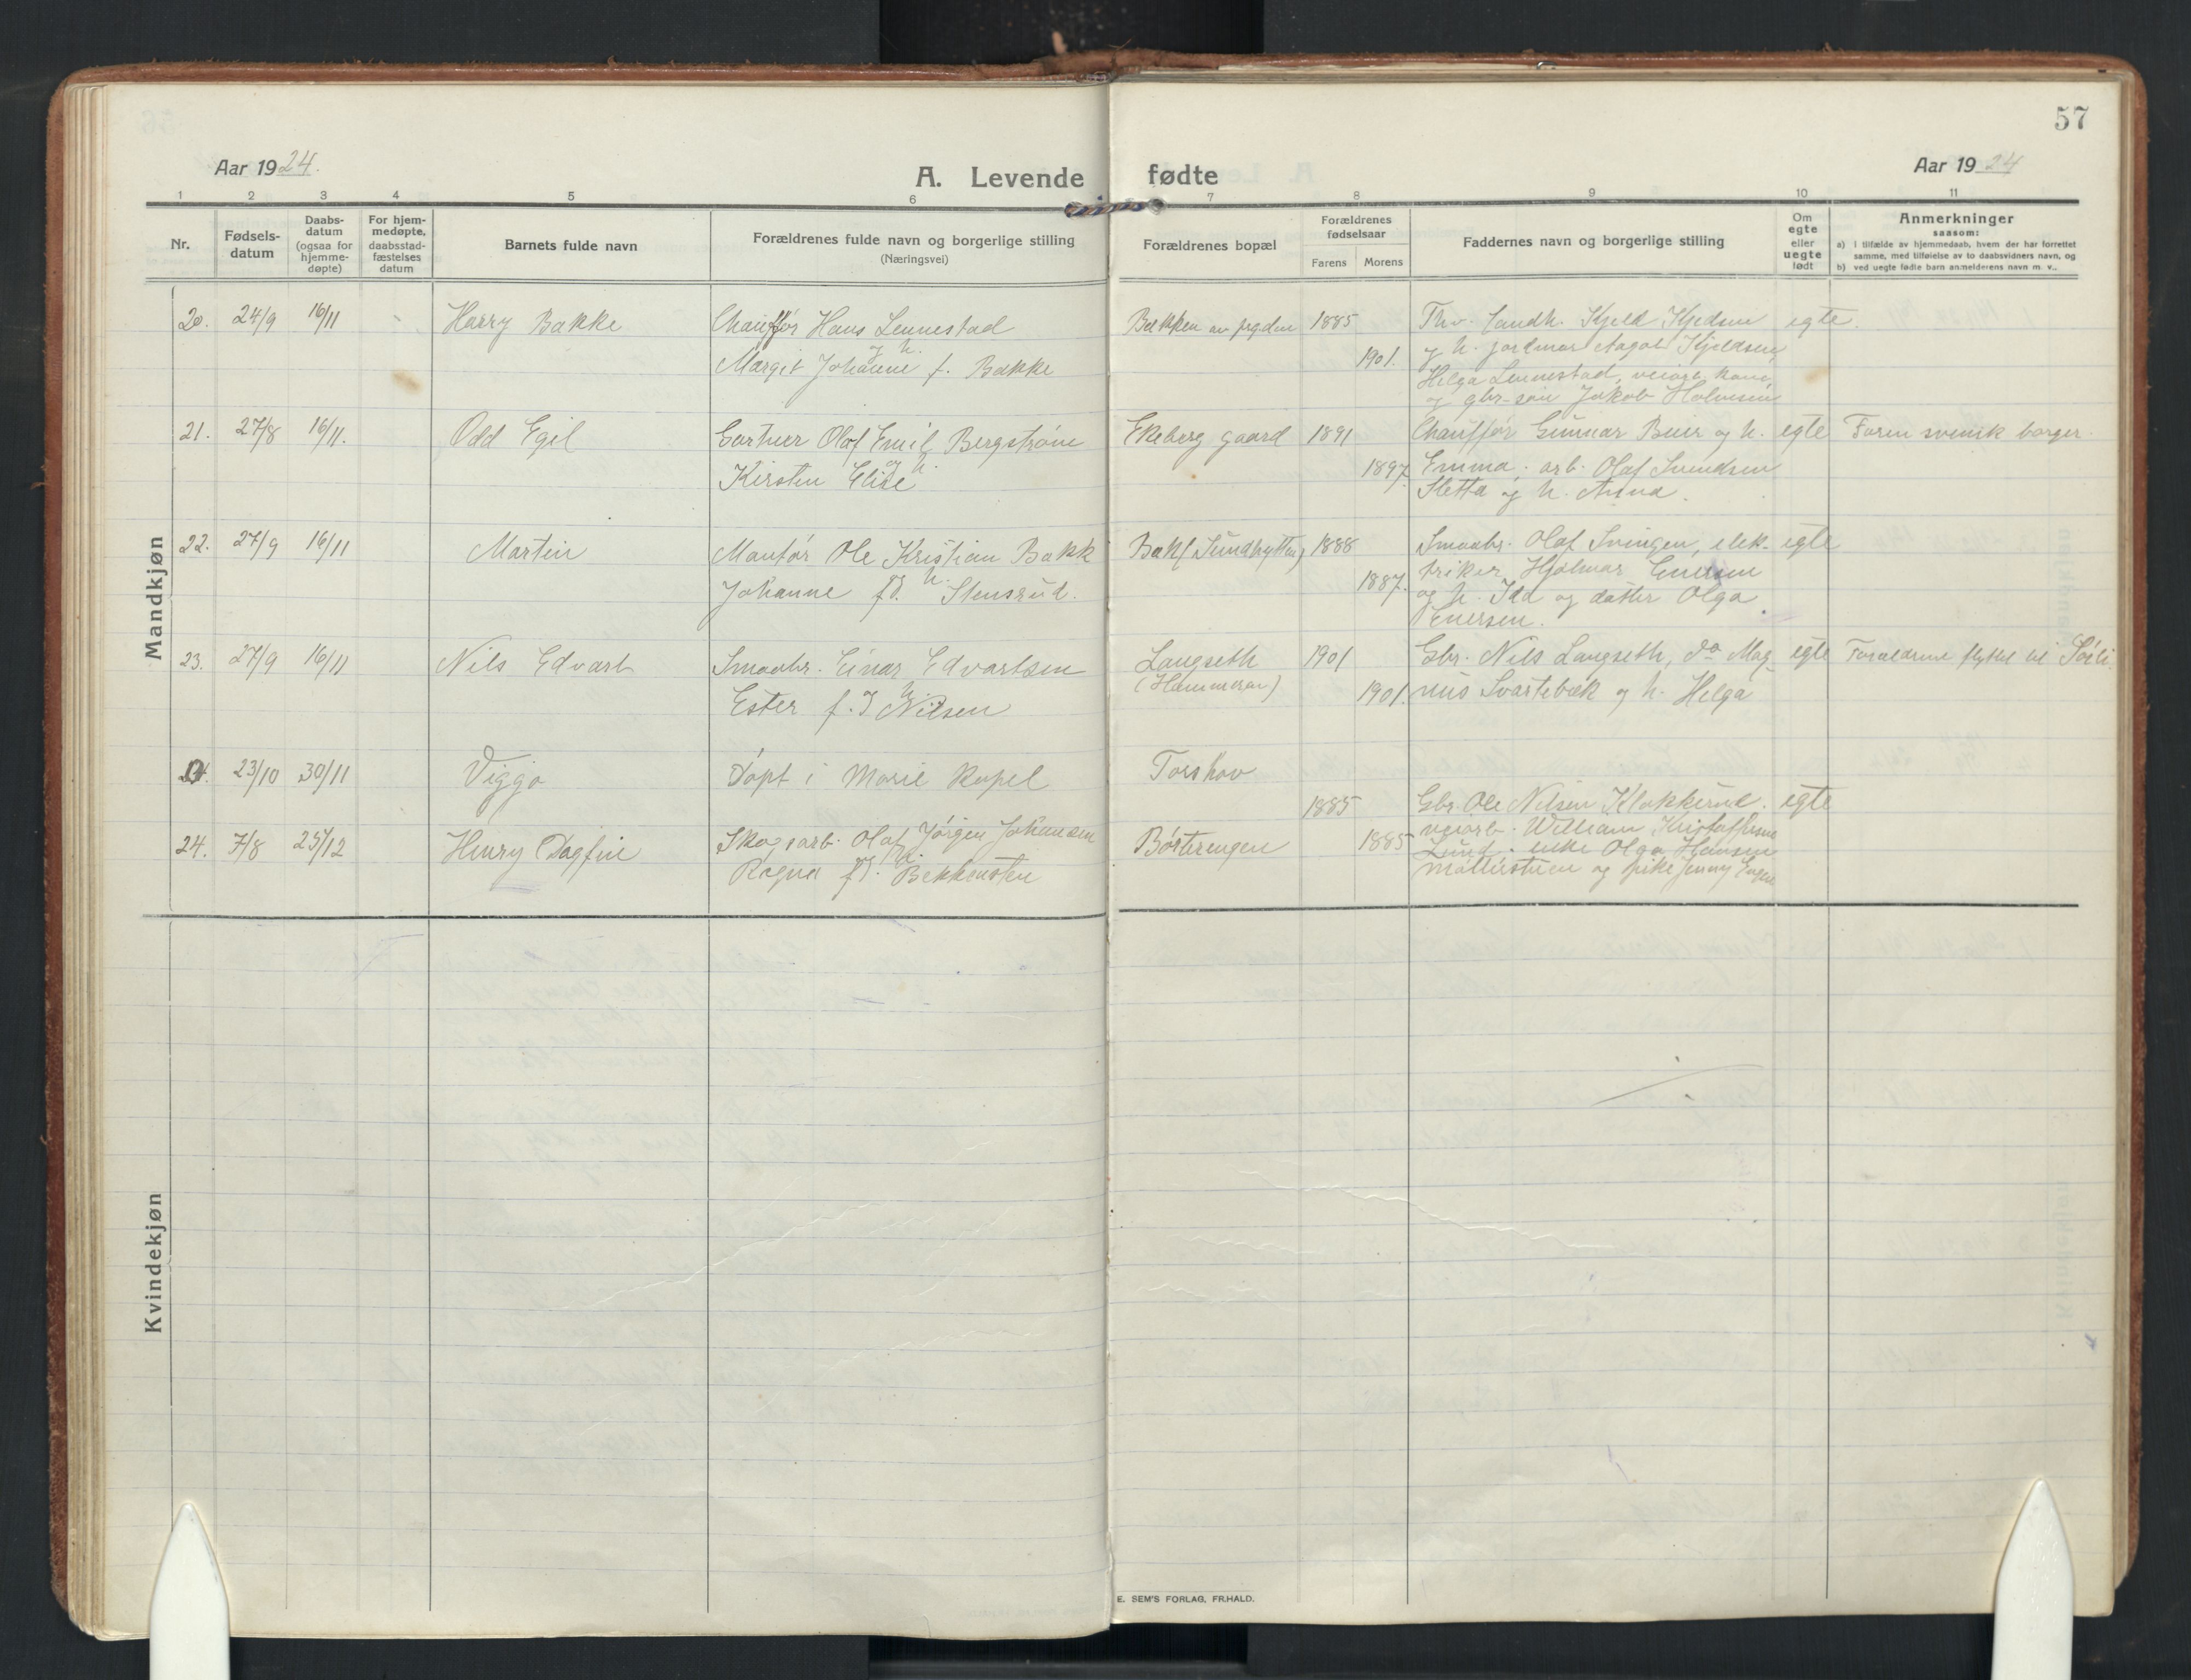 57
Aar 1924.
A. Levende fødte
Aar 1924
1 2 3 4 5 6 7 8 9 10 11
Nr.
Fødsels-
datum
Daabs-
datum
(ogsaa for
hjemme-
døpte)
For hjem-
medøpte,
daabsstad-
fæstelses
datum
Barnets fulde navn
Forældrenes fulde navn og borgerlige stilling
(Næringsvei)
Forældrenes bopæl
Forældrenes
fødselsaar
Farens Morens
Faddernes navn og borgerlige stilling
Om
egte
eller
uegte
født
Anmerkninger
saasom:
a) i tilfælde av hjemmedaab, hvem der har forrettet
samme, med tilføielse av to daabsvidners navn, og
b) ved uegte fødte barn anmelderens navn m. v..
Mandkjøn
20. 24/9 16/11 Harry Bakke Chauffør Hans Lennestad Bakken av 1885 Thv. Landh. Kjeld Kjeldsen egte.
og h. 1901. og h. jordmor Aagot Kjeldsen,
Margit Johanne f. Bakke Helga Lennestad,
og gbr-søn Jakob Halvorsen
21. 27/8 16/11. Odd Egil Gartner Olaf Emil Bergstrøm Ekeberg gaard 1891 Chauffør Gunnar Beier og h. egte Faren svensk borger.
og h. 1897. Emma. arb. Olaf Svendsen
Kirsten Elise Sletta og h. Anna.
22. 27/9 16/11 Martin Montør Ole Kristian Bakk Bak 1888 Smaabr. Olaf Svingen, elek- egte
h. 1887. triker Hjalmar Enersen
Johanne f. Stensrud. og h. Ida og datter Olga
Enersen.
23. 27/9 16/11 Nils Edvart Smaabr. Einar Edvartsen Langseth 1901 Gbr. Nils Langseth, do Mag- egte Forældrene flyttet til Sørli.
h. (Hammeren) 1901. nus Svartebæk og h. Helga
Ester f. Nilsen
24. 23/10 30/11 Viggo Døpt i Marie Kapel Torshov
24. 7/8 25/12 Henry Dagfin Skogsarb. Olaf Jørgen Johansen Børterengen 1885 Gbr. Ole Nilsen Klokkerud. egte
h. 1885 veiarb. William Kristoffersen
Ragna f. Bekkensten Lund. enke Olga Hansen
og pike Jenny Engen
Kvindekjøn
E. SEM'S FORLAG, FR.HALD.